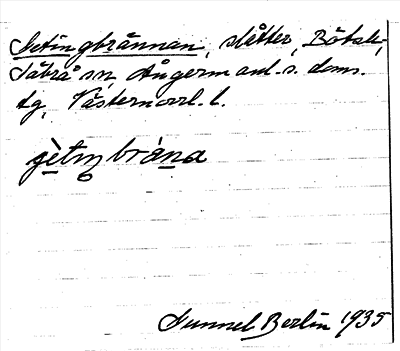 Setingbrännan, slåtter, Bölsle,
Säbrå sn, Ångermanl. s. doms.
tg, Västernorrl. l.
Gunnel Berlin 1935